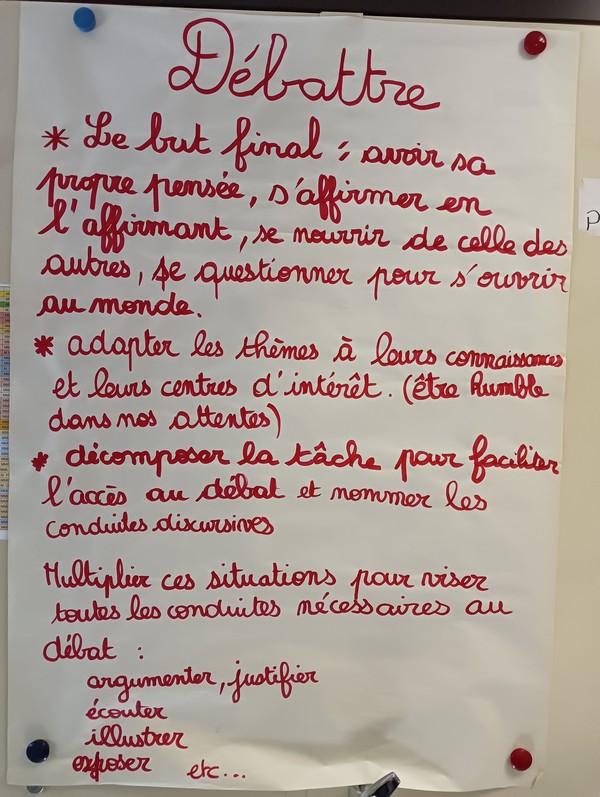 Débattre
* Le but final : avoir sa
propre pensée, s'affirmer en
l'affirmant, se nourrir de celle des
autres, se questionner pour s'ouvrir
au monde.
* adapter les thèmes à leurs connaissances
et leurs centres d'intérêt. (être humble
dans nos attentes)
* décomposer la tâche pour faciliter
l'accès au débat et nommer les
conduites discursives
Multiplier ces situations pour viser
toutes les conduites nécessaires au
débat :
argumenter, justifier
écouter
illustrer
exposer etc...
P